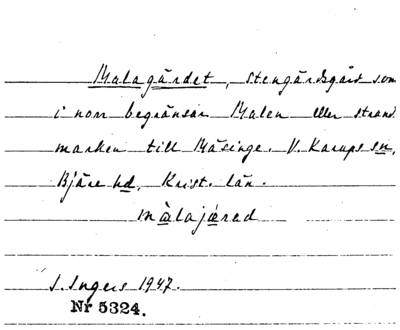 Malagärdet, stengärdsgård som
i norr begränsar Malen eller strand
marken till Båsinge. V. Karups sn,
Bjäre hd, Krist. län.
màlajæred
I. Ingers 1947.
Nr 5324.